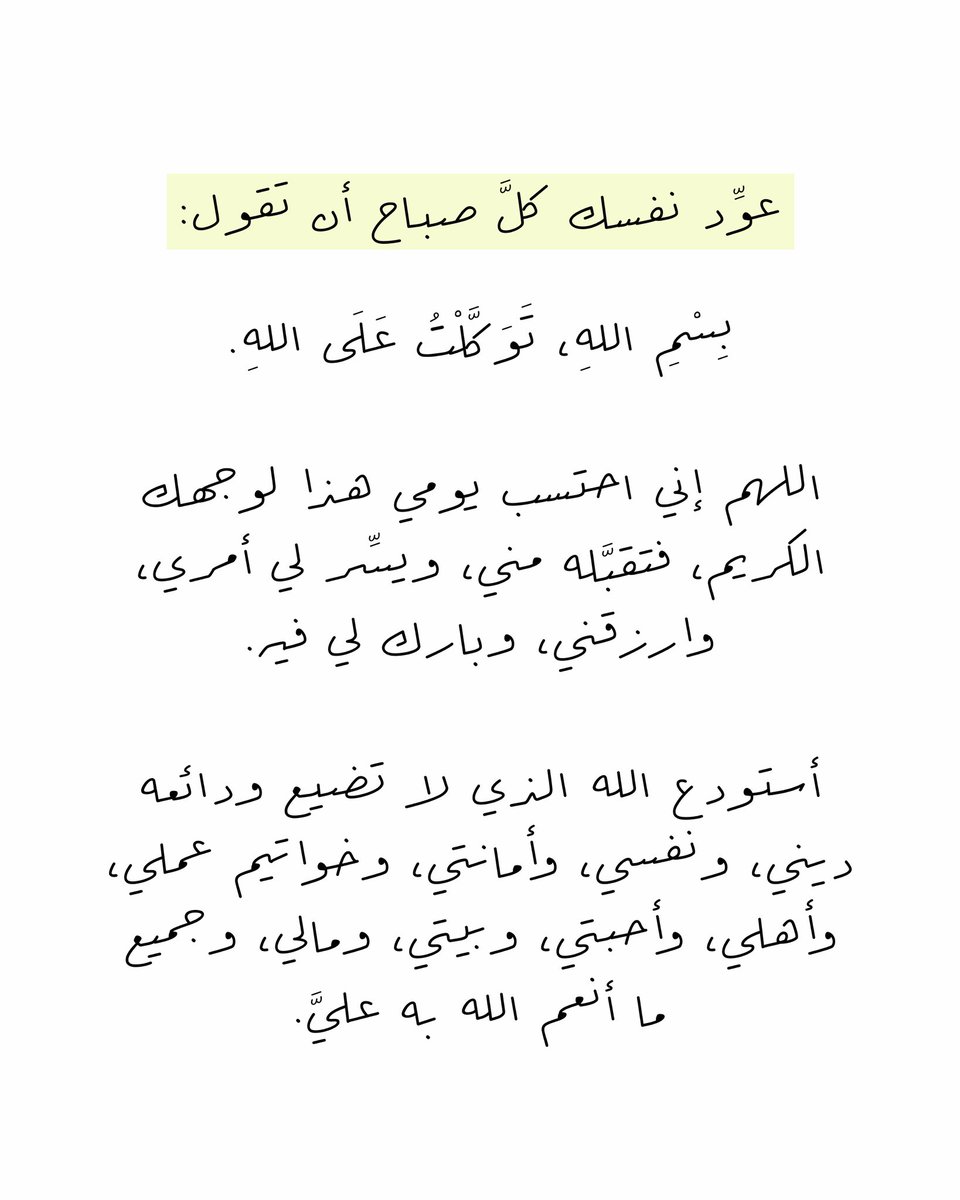 عوِّد نفسك كلَّ صباح أن تقول:
بِسْمِ اللهِ، تَوَكَّلْتُ عَلَى اللهِ.
اللهم إني احتسب يومي هذا لوجهك
الكريم، فتقبَّله مني، ويسِّر لي أمري،
وارزقني، وبارك لي فيه.
أستودع الله الذي لا تضيع ودائعه
ديني، ونفسي، وأمانتي، وخواتيم عملي،
وأهلي، وأحبتي، وبيتي، ومالي، وجميع
ما أنعم الله به عليَّ.